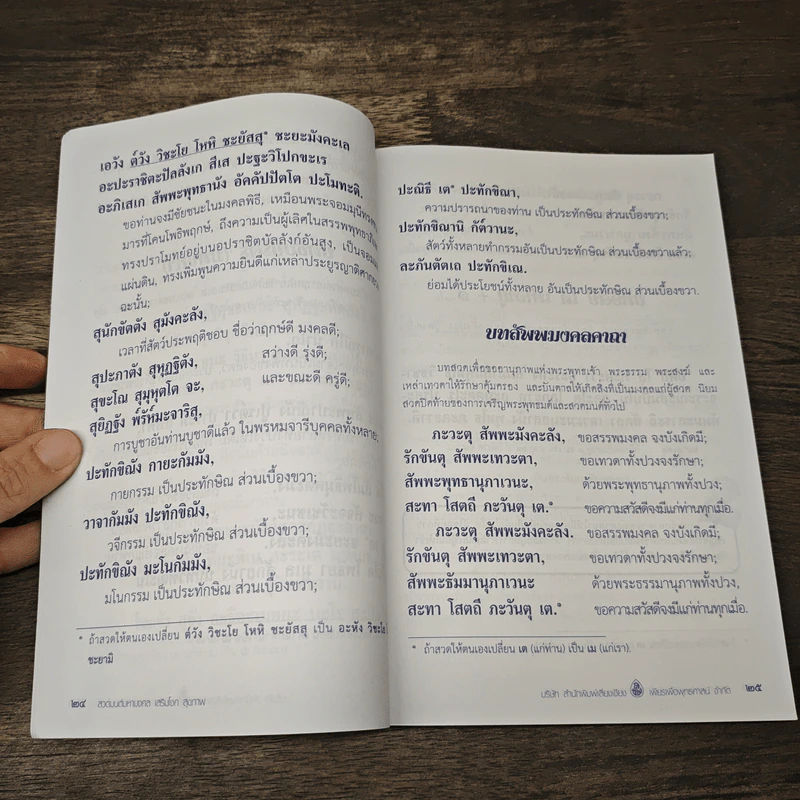 เอวัง ต๎วัง วิชะโย โหหิ ชะยัสสุ* ชะยะมังคะเล
อะปะราชิตะปัลลังเก สีเส ปะฐะวิโปกขะเร
อะภิเสเก สัพพะพุทธานัง อัคคัปปัตโต ปะโมทะติ.
ขอท่านจงมีชัยชนะในมงคลพิธี, เหมือนพระจอมมุนีทรงชนะ
มารที่โคนโพธิพฤกษ์, ถึงความเป็นผู้เลิศในสรรพพุทธาภิเษก
ทรงปราโมทย์อยู่บนอปราชิตบัลลังก์อันสูง, เป็นจอมมหา
แผ่นดิน, ทรงเพิ่มพูนความยินดีแก่เหล่าประยูรญาติศากยวงศ์
ฉะนั้น;
สุนักขัตตัง สุมังคะลัง,
เวลาที่สัตว์ประพฤติชอบ ชื่อว่าฤกษ์ดี มงคลดี;
สุปะภาตัง สุหุฏฐิตัง, สว่างดี รุ่งดี;
สุขะโณ สุมุหุตโต จะ, และขณะดี ครู่ดี;
สุยิฏฐัง พ๎รัห๎มะจาริสุ,
การบูชาอันท่านบูชาดีแล้ว ในพรหมจารีบุคคลทั้งหลาย;
ปะทักขิณัง กายะกัมมัง,
กายกรรม เป็นประทักษิณ ส่วนเบื้องขวา;
วาจากัมมัง ปะทักขิณัง,
วจีกรรม เป็นประทักษิณ ส่วนเบื้องขวา;
ปะทักขิณัง มะโนกัมมัง,
มโนกรรม เป็นประทักษิณ ส่วนเบื้องขวา;
* ถ้าสวดให้ตนเองเปลี่ยน ต๎วัง วิชะโย โหหิ ชะยัสสุ เป็น อะหัง วิชะโย
ชะยามิ
๒๔ สวดมนต์มหามงคล เสริมโชค สุขภาพ
ปะณิธี เต* ปะทักขิณา,
ความปรารถนาของท่าน เป็นประทักษิณ ส่วนเบื้องขวา;
ปะทักขิณานิ กัต๎วานะ,
สัตว์ทั้งหลายทำกรรมอันเป็นประทักษิณ ส่วนเบื้องขวาแล้ว;
ละภันตัตเถ ปะทักขิเณ.
ย่อมได้ประโยชน์ทั้งหลาย อันเป็นประทักษิณ ส่วนเบื้องขวา.
บทสัพพมงคลคาถา
บทสวดเพื่อขออานุภาพแห่งพระพุทธเจ้า พระธรรม พระสงฆ์ และ
เหล่าเทวดาให้รักษาคุ้มครอง และบันดาลให้เกิดสิ่งที่เป็นมงคลแก่ผู้สวด นิยม
สวดปิดท้ายของการเจริญพระพุทธมนต์และสวดมนต์ทั่วไป
ภะวะตุ สัพพะมังคะลัง, ขอสรรพมงคล จงบังเกิดมี;
รักขันตุ สัพพะเทวะตา, ขอเทวดาทั้งปวงจงรักษา;
สัพพะพุทธานุภาเวนะ, ด้วยพระพุทธานุภาพทั้งปวง,
สะทา โสตถี ภะวันตุ เต.* ขอความสวัสดีจงมีแก่ท่านทุกเมื่อ.
ภะวะตุ สัพพะมังคะลัง. ขอสรรพมงคล จงบังเกิดมี;
รักขันตุ สัพพะเทวะตา, ขอเทวดาทั้งปวงจงรักษา;
สัพพะธัมมานุภาเวนะ ด้วยพระธรรมานุภาพทั้งปวง,
สะทา โสตถี ภะวันตุ เต.* ขอความสวัสดีจงมีแก่ท่านทุกเมื่อ.
* ถ้าสวดให้ตนเองเปลี่ยน เต (แก่ท่าน) เป็น เม (แก่เรา).
บริษัท สำนักพิมพ์เลี่ยงเชียง เพียรเพื่อพุทธศาสน์ จำกัด ๒๕